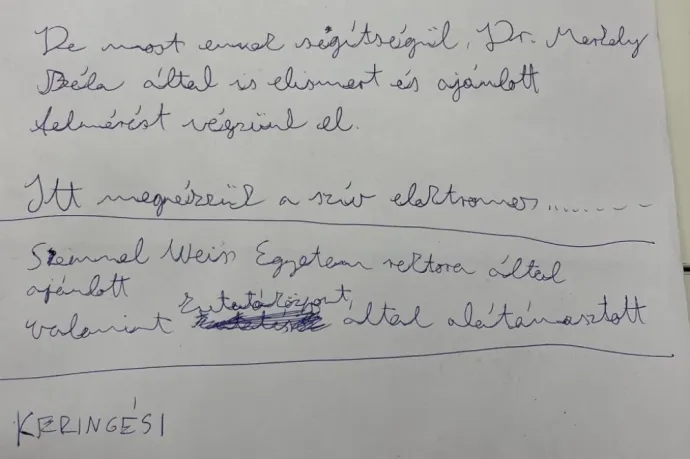 De most ennek segítségül, Dr. Merkely
Béla által is elismert és ajánlott
felmérést végzünk el.
Itt megnézzük a szív elektromos.........
Semmel Weiss Egyetem rektora által
ajánlott
valamint kutatóközpont által alátámasztott
KERINGÉSI